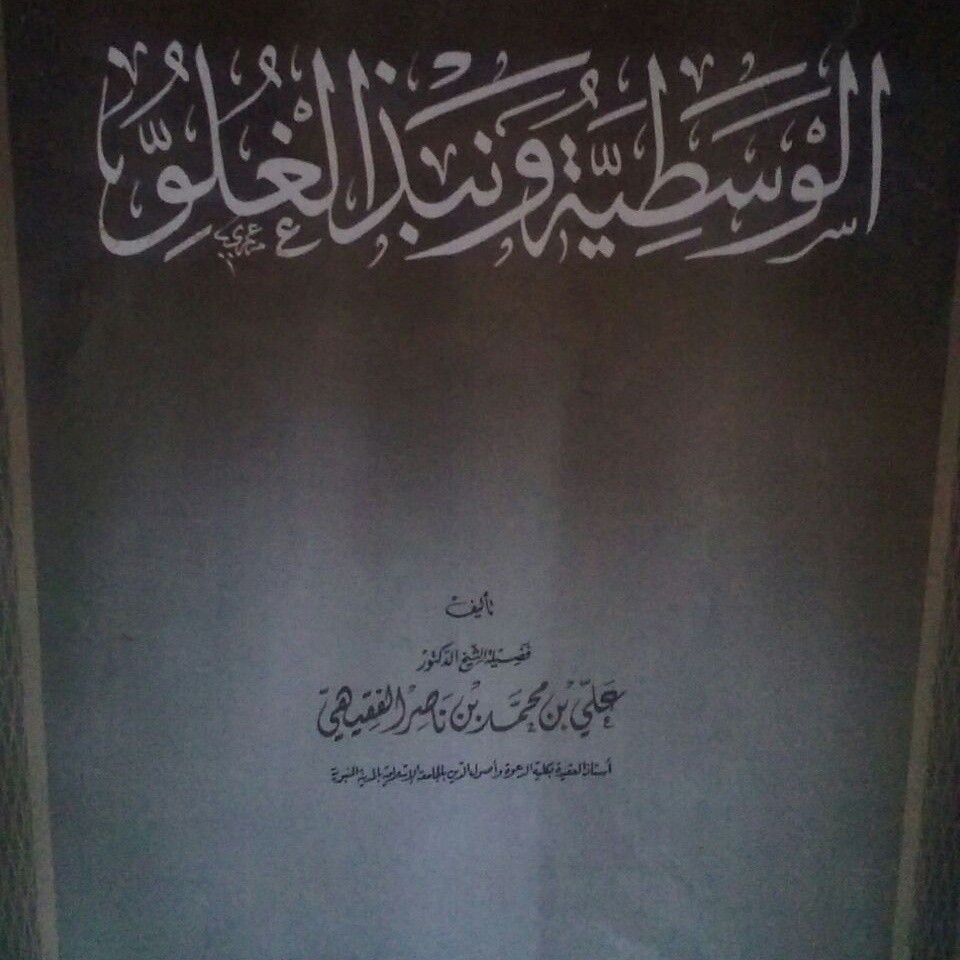 الْوَسَطِيَّةُ وَنَبْذُ الْغُلُوِّ
تأليف
فضيلة الشيخ الدكتور
علي بن محمد بن ناصر الفقيهي
أستاذ العقيدة بكلية الدعوة وأصول الدين بالجامعة الإسلامية بالمدينة النبوية